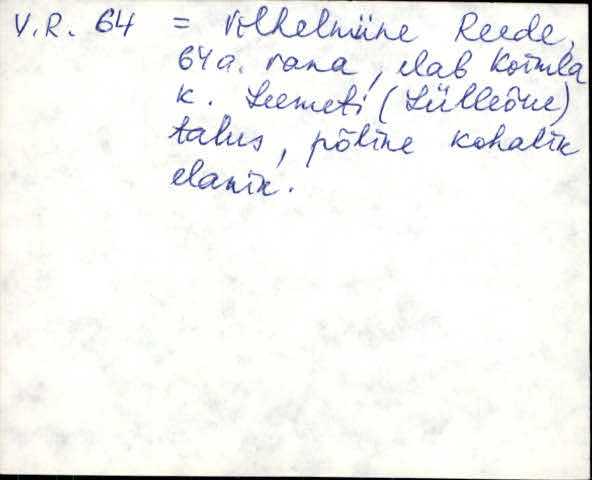 V.R. 64 = Vilhelmiine Reede,
64 a. vana, elab Koimla
k. Leemeti (Sülleõue)
talus, põline kohalik
elanik.